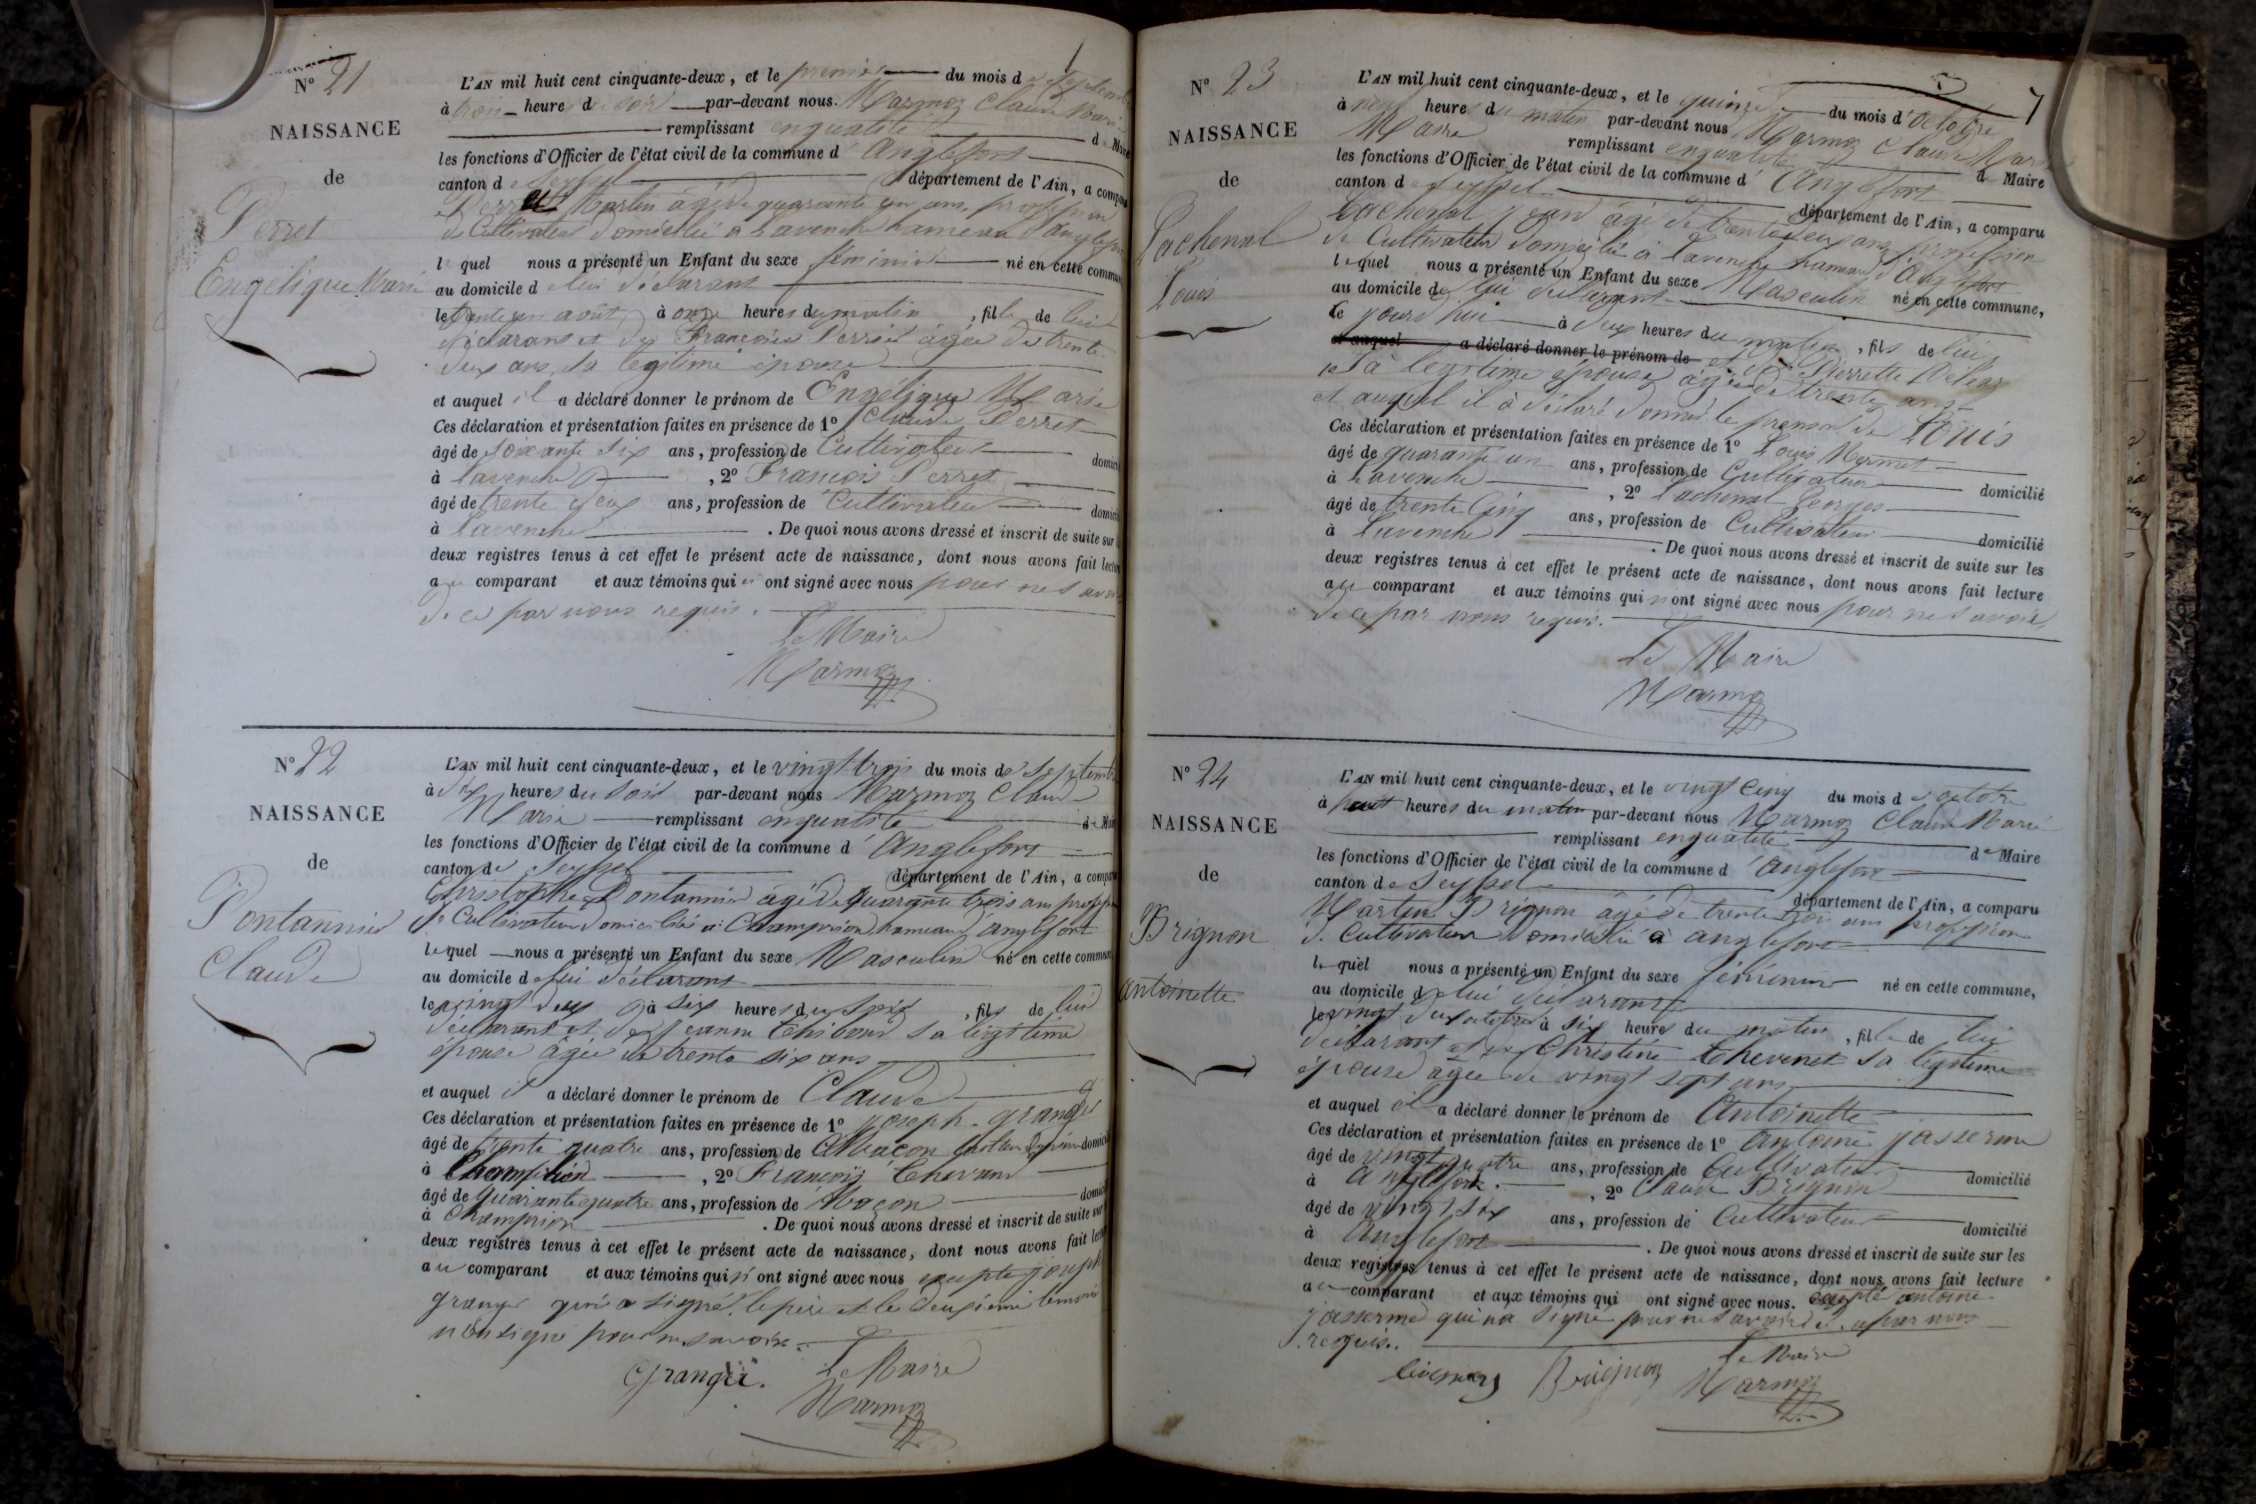 N° 21
NAISSANCE
de
Perret
Engélique Marie
L'AN mil huit cent cinquante-deux, et le premier du mois de Septembre
à trois heures du soir par-devant nous Marmoz Claude Marie
remplissant en qualité de Maire
les fonctions d'Officier de l'état civil de la commune d'Anglefort
canton de Seyssel département de l'Ain, a comparu
Perret Martin âgé de quarante un ans, profession
de Cultivateur domicilié à Lavenche hameau d'anglefort
lequel nous a présenté un Enfant du sexe féminin né en cette commune
au domicile de lui déclarant
le trente un août à onze heures du matin, fille de lui
déclarant et de Françoise Perret âgée de trente
deux ans, sa légitime épouse
et auquel il a déclaré donner le prénom de Engélique Marie
Ces déclaration et présentation faites en présence de 1° Claude Perret
âgé de soixante six ans, profession de Cultivateur domicilié
à lavenche, 2° François Perret
âgé de trente deux ans, profession de Cultivateur domicilié
à lavenche. De quoi nous avons dressé et inscrit de suite sur les
deux registres tenus à cet effet le présent acte de naissance, dont nous avons fait lecture
au comparant et aux témoins qui n'ont signé avec nous pour ne savoir
de ce par nous requis.
Le Maire
Marmoz
N° 22
NAISSANCE
de
Pontannier
Claude
L'AN mil huit cent cinquante-deux, et le vingt trois du mois de Septembre
à six heures du soir par-devant nous Marmoz Claude
Marie remplissant en qualité de Maire
les fonctions d'Officier de l'état civil de la commune d'Anglefort
canton de Seyssel département de l'Ain, a comparu
Christophe Pontannier âgé de quarante trois ans profession
de Cultivateur domicilié à Champrion hameau d'anglefort
lequel nous a présenté un Enfant du sexe Masculin né en cette commune
au domicile de lui déclarant
le vingt deux à six heures du soir, fils de lui
déclarant et de Jeanne Chiboud sa légitime
épouse âgée de trente six ans
et auquel il a déclaré donner le prénom de Claude
Ces déclaration et présentation faites en présence de 1° joseph granger
âgé de trente quatre ans, profession de Maçon domicilié
à Champrion, 2° François
âgé de quarante quatre ans, profession de Maçon domicilié
à Champrion. De quoi nous avons dressé et inscrit de suite sur
deux registres tenus à cet effet le présent acte de naissance, dont nous avons fait lecture
au comparant et aux témoins qui n'ont signé avec nous excepté joseph
granger qui a signé. le père et le deuxième témoin
n'ont signé pour ne savoir.
Le Maire
Marmoz
N° 23
NAISSANCE
de
Lachenal
Louis
7
L'AN mil huit cent cinquante-deux, et le quinze du mois d'Octobre
à neuf heures du matin par-devant nous Marmoz Claude Marie
Maire remplissant en qualité de Maire
les fonctions d'Officier de l'état civil de la commune d'Anglefort
canton de Seyssel département de l'Ain, a comparu
Lachenal jean âgé de trente deux ans profession
de Cultivateur domicilié à lavenche hameau d'Anglefort
lequel nous a présenté un Enfant du sexe Masculin né en cette commune,
au domicile de lui déclarant
le jourd'hui à deux heures du matin, fils de lui
et auquel a déclaré donner le prénom de et de Pierrette
sa légitime épouse âgée de trente ans
et auquel il a déclaré donner le prénom de Louis
Ces déclaration et présentation faites en présence de 1° Louis Mermet
âgé de quarante un ans, profession de Cultivateur domicilié
à Lavenche, 2° Lachenal Georges
âgé de trente Cinq ans, profession de Cultivateur domicilié
à Lavenche. De quoi nous avons dressé et inscrit de suite sur les
deux registres tenus à cet effet le présent acte de naissance, dont nous avons fait lecture
au comparant et aux témoins qui n'ont signé avec nous pour ne savoir,
de ce par nous requis.
Le Maire
Marmoz
N° 24
NAISSANCE
de
Brignon
antoinette
L'AN mil huit cent cinquante-deux, et le vingt Cinq du mois d'octobre
à huit heures du matin par-devant nous Marmoz Claude Marie
remplissant en qualité de Maire
les fonctions d'Officier de l'état civil de la commune d'anglefort
canton de Seyssel département de l'Ain, a comparu
Martin Brignon âgé de trente trois ans profession
de Cultivateur domicilié à anglefort
lequel nous a présenté un Enfant du sexe féminin né en cette commune,
au domicile de lui déclarant
le vingt deux octobre à six heures du matin, fille de lui
déclarant et de Christine Chevenet sa légitime
épouse âgée de vingt sept ans
et auquel il a déclaré donner le prénom de Antoinette
Ces déclaration et présentation faites en présence de 1° antoine jasserme
âgé de vingt quatre ans, profession de Cultivateur domicilié
à Anglefort, 2° Claude Brignon
âgé de vingt six ans, profession de Cultivateur domicilié
à Anglefort. De quoi nous avons dressé et inscrit de suite sur les
deux registres tenus à cet effet le présent acte de naissance, dont nous avons fait lecture
au comparant et aux témoins qui ont signé avec nous. excepté antoine
jasserme qui n'a signé pour ne savoir de ce par nous
requis.
Brignon
Le Maire
Marmoz